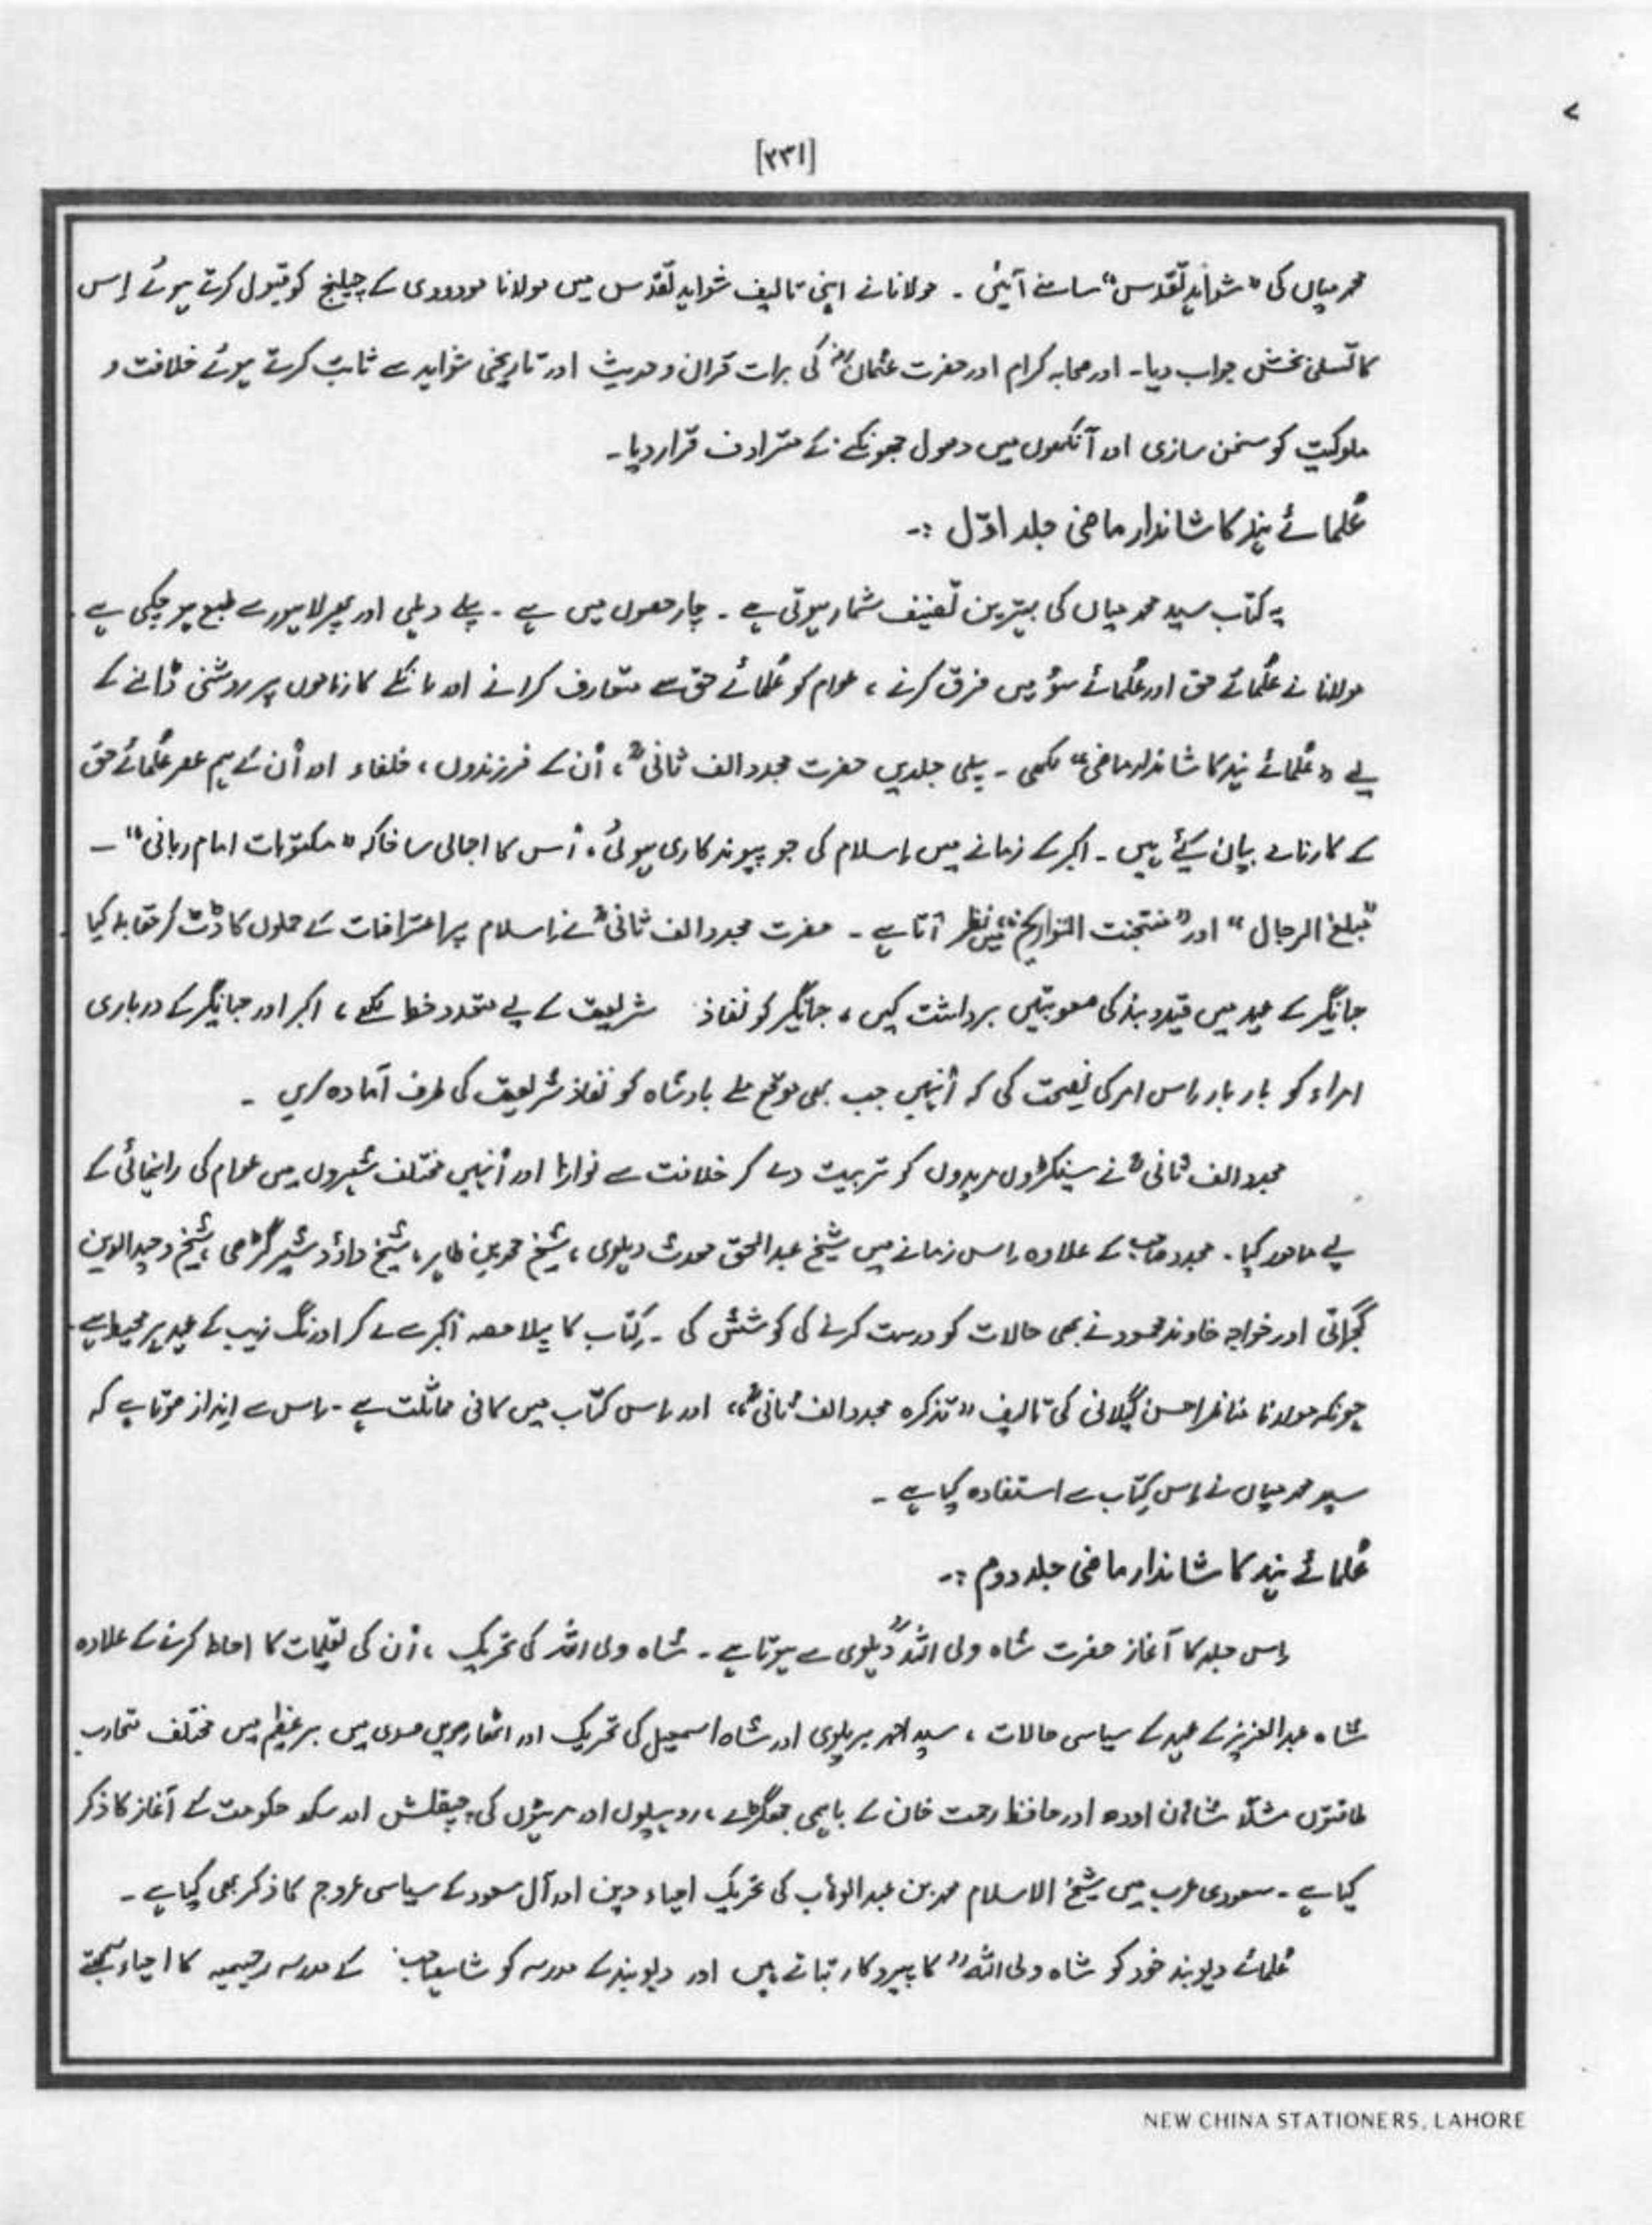 [۲۳۱]
محمد میاں کی "شواہد تقدس" سامنے آئیں ۔ مولانا نے اپنی تالیف شواہد تقدس میں مولانا مودودی کے چیلنج کو قبول کرتے ہوئے اِس
کا تسلی بخش جواب دیا۔ اور صحابہ کرام اور حضرت عثمانؓ کی برات قران و حدیث اور تاریخی شواہد سے ثابت کرتے ہوئے خلافت و
ملوکیت کو سخن سازی اور آنکھوں میں دھول جھونکنے کے مترادف قرار دیا۔
عُلمائے ہند کا شاندار ماضی جلد اوّل :۔
یہ کتاب سید محمد میاں کی بہترین تصنیف شمار ہوتی ہے ۔ چار حصوں میں ہے ۔ پہلے دہلی اور پھر لاہور سے طبع ہو چکی ہے ۔
مولانا نے عُلمائے حق اور عُلمائے سُوء میں فرق کرنے ، عوام کو عُلمائے حق سے متعارف کرانے اور کارناموں پر روشنی ڈالنے کے
لیے "عُلمائے ہند کا شاندار ماضی" لکھی ۔ پہلی جلد میں حضرت مجدد الف ثانیؒ ، اُن کے فرزندوں ، خلفاء اور اُن کے ہم عصر عُلمائے حق
کے کارنامے بیان کیے ہیں ۔ اکبر کے زمانے میں اِسلام کی جو پیوندکاری ہوئی ، اُس کا اجمالی سا خاکہ "مکتوبات امام ربانی" ۔
"مبلغ الرجال" اور "منتخبت التواریخ" میں نظر آتا ہے ۔ حضرت مجدد الف ثانیؒ نے اِسلام پر اعتراضات کے حملوں کا ڈٹ کر مقابلہ کیا ۔
جہانگیر کے عہد میں قید و بند کی صعوبتیں برداشت کیں ، جہانگیر کو نفاذ شریعت کے لیے متعدد خط لکھے ، اکبر اور جہانگیر کے درباری
امراء کو بار بار اِس امر کی نصیحت کی کہ اُنہیں جب بھی موقع ملے بادشاہ کو نفاذ شریعت کی طرف آمادہ کریں ۔
مجدد الف ثانیؒ نے سینکڑوں مریدوں کو تربیت دے کر خلافت سے نوازا اور اُنہیں مختلف شہروں میں عوام کی راہنمائی کے
لیے مامور کیا ۔ مجدد صاحب کے علاوہ اِس زمانے میں شیخ عبدالحق محدث دہلوی ، شیخ محمد بن طاہر ، شیخ داؤد شیر گڑھی ، شیخ وجیہ الدین
گجراتی اور خواجہ خاوند محمود نے بھی حالات کو درست کرنے کی کوشش کی ۔ کتاب کا پہلا حصہ اکبر سے لے کر اورنگ زیب کے عہد پر محیط ہے ۔
چونکہ مولانا مناظر احسن گیلانی کی تالیف "تذکرہ مجدد الف ثانیؒ" اور اِس کتاب میں کافی مماثلت ہے ۔ اِس سے انداز ہوتا ہے کہ
سید محمد میاں نے اِس کتاب سے استفادہ کیا ہے ۔
عُلمائے ہند کا شاندار ماضی جلد دوم :۔
اِس جلد کا آغاز حضرت شاہ ولی اللہؒ دہلوی سے ہوتا ہے ۔ شاہ ولی اللہ کی تحریک ، اُن کی تعلیمات کا احاطہ کرنے کے علاوہ
شاہ عبدالعزیز کے عہد کے سیاسی حالات ، سید احمد بریلوی اور شاہ اسمعیل کی تحریک اور اٹھارھویں صدی میں برعظیم میں مختلف متحارب
طاقتوں مثلاً شاہان اودھ اور حافظ رحمت خان کے باہمی جھگڑے ، روہیلوں اور مرہٹوں کی چپقلش اور سکھ حکومت کے آغاز کا ذکر
کیا ہے ۔ سعودی عرب میں شیخ الاسلام محمد بن عبدالوہاب کی تحریک احیاء دین اور آل سعود کے سیاسی عروج کا ذکر بھی کیا ہے ۔
عُلمائے دیوبند خود کو شاہ ولی اللہؒ کا پیروکار بتاتے ہیں اور دیوبند کے مدرسہ کو شاہ صاحب کے مدرسہ رحیمیہ کا احیاء سمجھتے
NEW CHINA STATIONERS, LAHORE